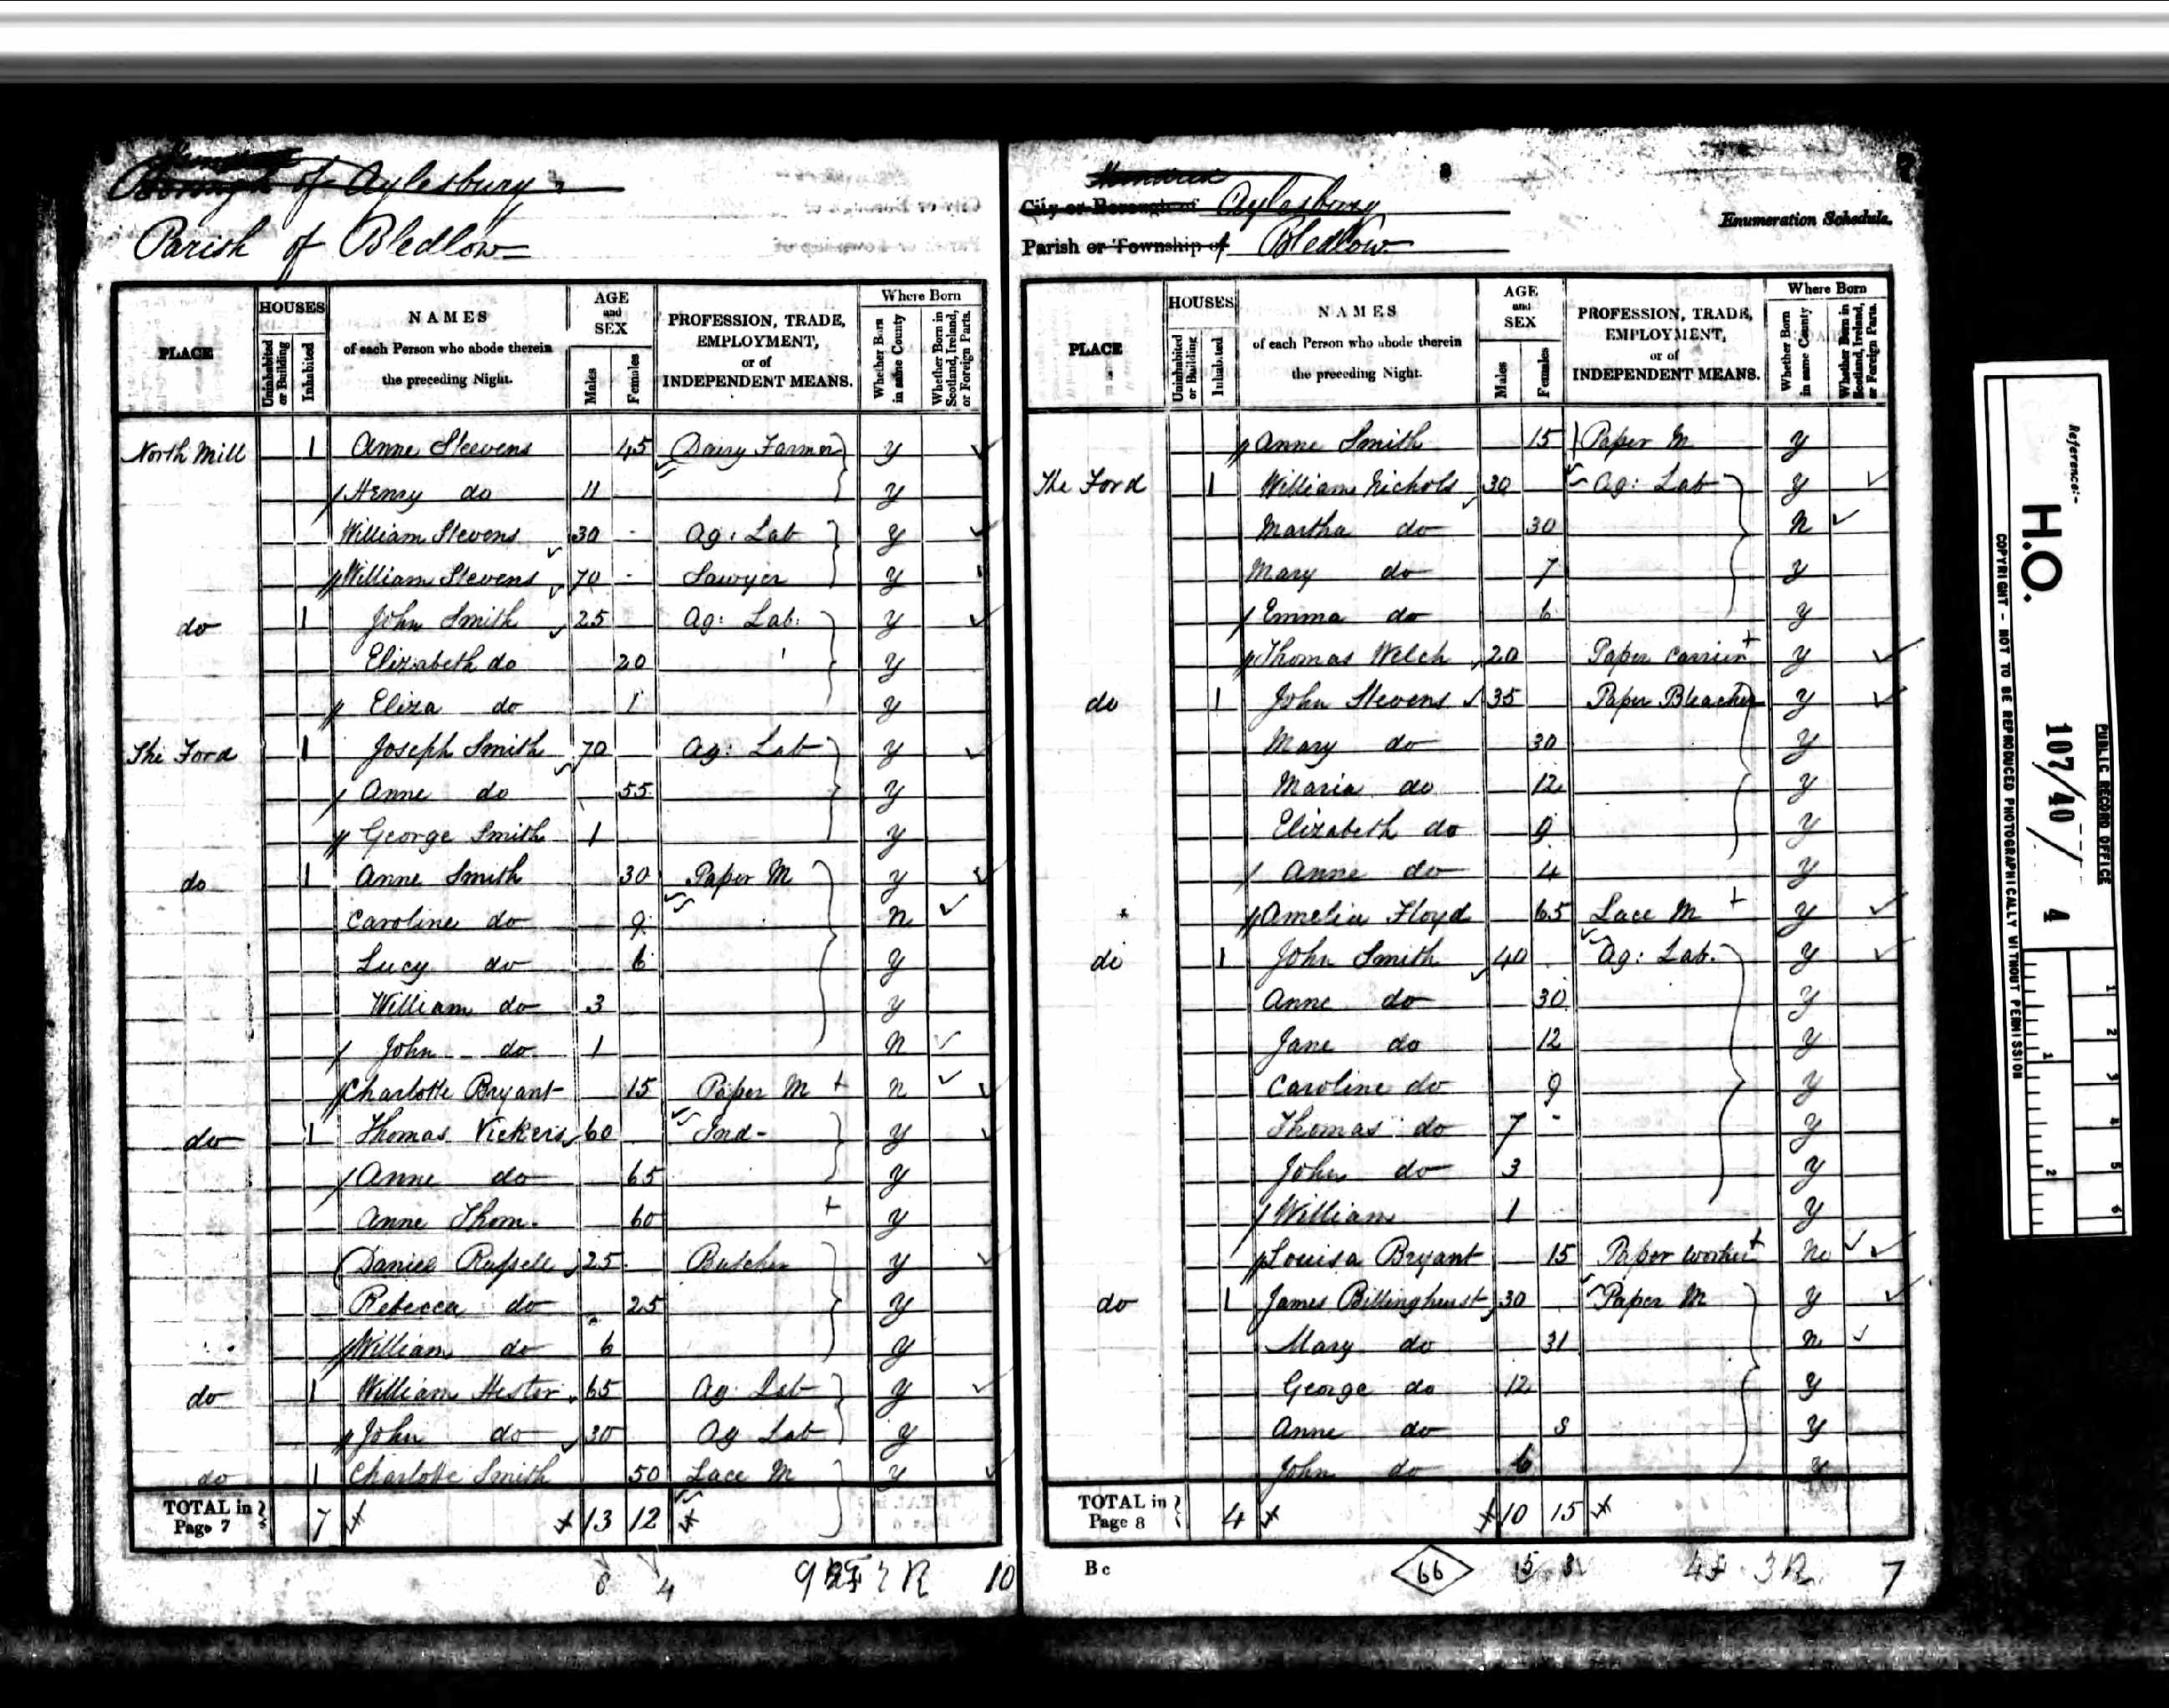 Hundred
Borough of Aylesbury
Parish of Bledlow
PLACE
HOUSES
Uninhabited or Building
Inhabited
NAMES
of each Person who abode therein
the preceding Night.
AGE
and
SEX
Males
Females
PROFESSION, TRADE,
EMPLOYMENT,
or of
INDEPENDENT MEANS.
Where Born
Whether Born in same County
Whether Born in Scotland, Ireland, or Foreign Parts.
North Mill 1 Anne Steevens 45 Dairy Farmer y
Henry do 11 y
William Stevens 30 Ag: Lab y
William Stevens 70 Sawyer y
do 1 John Smith 25 Ag: Lab: y
Elizabeth do 20 y
Eliza do 1 y
The Ford 1 Joseph Smith 70 Ag: Lab y
Anne do 55 y
George Smith 1 y
do 1 Anne Smith 30 Paper M y
Caroline do 9 n
Lucy do 6 y
William do 3 y
John do 1 n
Charlotte Bryant 15 Paper M + n
do 1 Thomas Vickers 60 Ind- y
Anne do 65 y
Anne Thom. 60 + y
Daniel Russell 25 Butcher y
Rebecca do 25 y
William do 6 y
do 1 William Hester 65 Ag Lab y
John do 30 Ag Lab y
do 1 Charlotte Smith 50 Lace M y
TOTAL in Page 7 7 13 12
10
Hundred
City or Borough of Aylesbury
Parish or Township of Bledlow
Enumeration Schedule.
PLACE
HOUSES
Uninhabited or Building
Inhabited
NAMES
of each Person who abode therein
the preceding Night.
AGE
and
SEX
Males
Females
PROFESSION, TRADE,
EMPLOYMENT,
or of
INDEPENDENT MEANS.
Where Born
Whether Born in same County
Whether Born in Scotland, Ireland, or Foreign Parts.
Anne Smith 15 Paper M y
The Ford 1 William Nichols 30 Ag: Lab y
Martha do 30 n
Mary do 7 y
Emma do 6 y
Thomas Welch 20 Paper Carrier + y
do 1 John Stevens 35 Paper Bleacher y
Mary do 30 y
Maria do 12 y
Elizabeth do 9 y
Anne do 4 y
Amelia Floyd 65 Lace M + y
do 1 John Smith 40 Ag: Lab. y
Anne do 30 y
Jane do 12 y
Caroline do 9 y
Thomas do 7 y
John do 3 y
William 1 y
Louisa Bryant 15 Paper worker + no
do 1 James Billinghurst 30 Paper M y
Mary do 31 n
George do 12 y
Anne do 8 y
John do 6 y
TOTAL in Page 8 4 10 15
Bc
66
7
Reference:-
H.O. 107/40/ 4
PUBLIC RECORD OFFICE
COPYRIGHT - NOT TO BE REPRODUCED PHOTOGRAPHICALLY WITHOUT PERMISSION
1 2 3 4 5 6
1 2